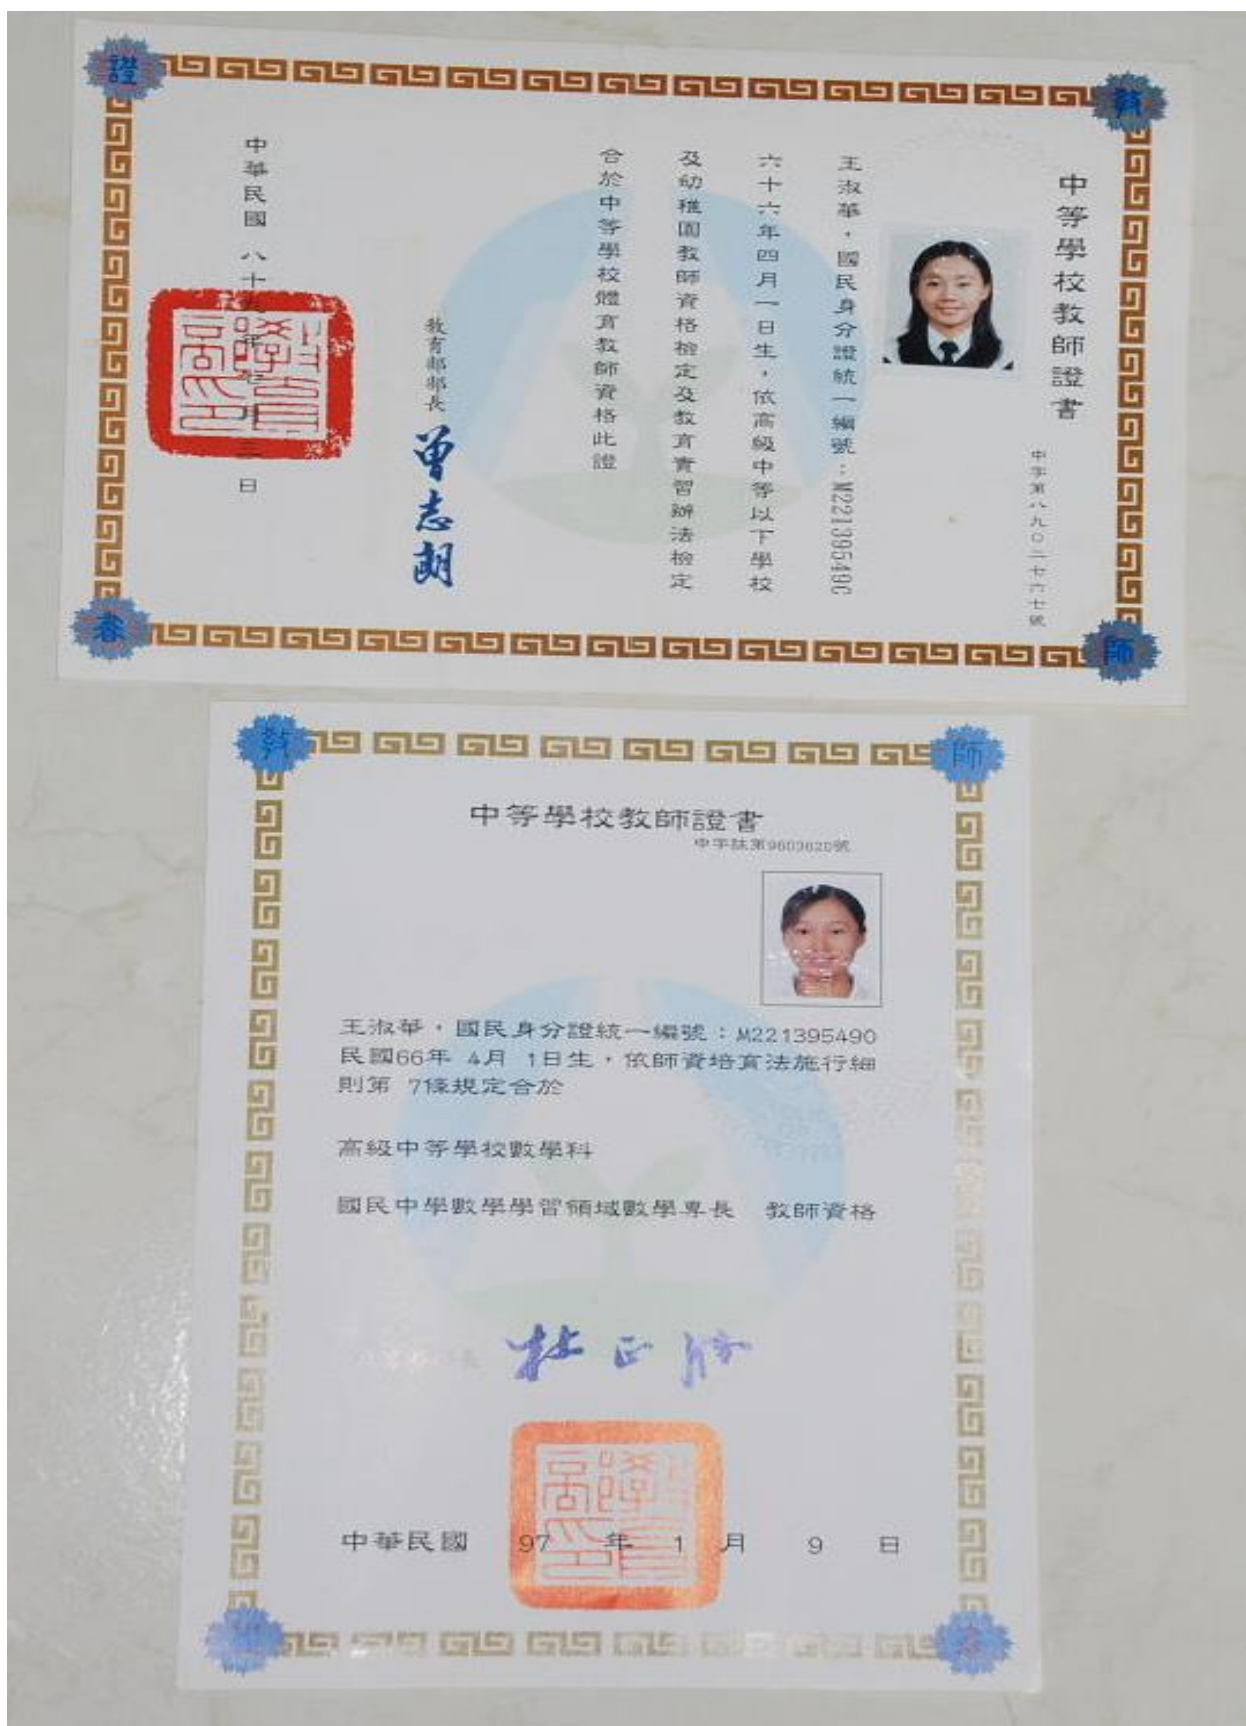 中等學校教師證書
中字第八九〇二七六七號
王淑華，國民身分證統一編號：M221395490
六十六年四月一日生，依高級中等以下學校
及幼稚園教師資格檢定及教育實習辦法檢定
合於中等學校體育教師資格此證
教育部部長 曾志朗
中華民國八十九年七月三日
教
師
證
書
教
師
中等學校教師證書
中字註第9603620號
王淑華，國民身分證統一編號：M221395490
民國66年 4月 1日生，依師資培育法施行細
則第 7條規定合於
高級中等學校數學科
國民中學數學學習領域數學專長 教師資格
長 杜正勝
中華民國 97 年 1 月 9 日